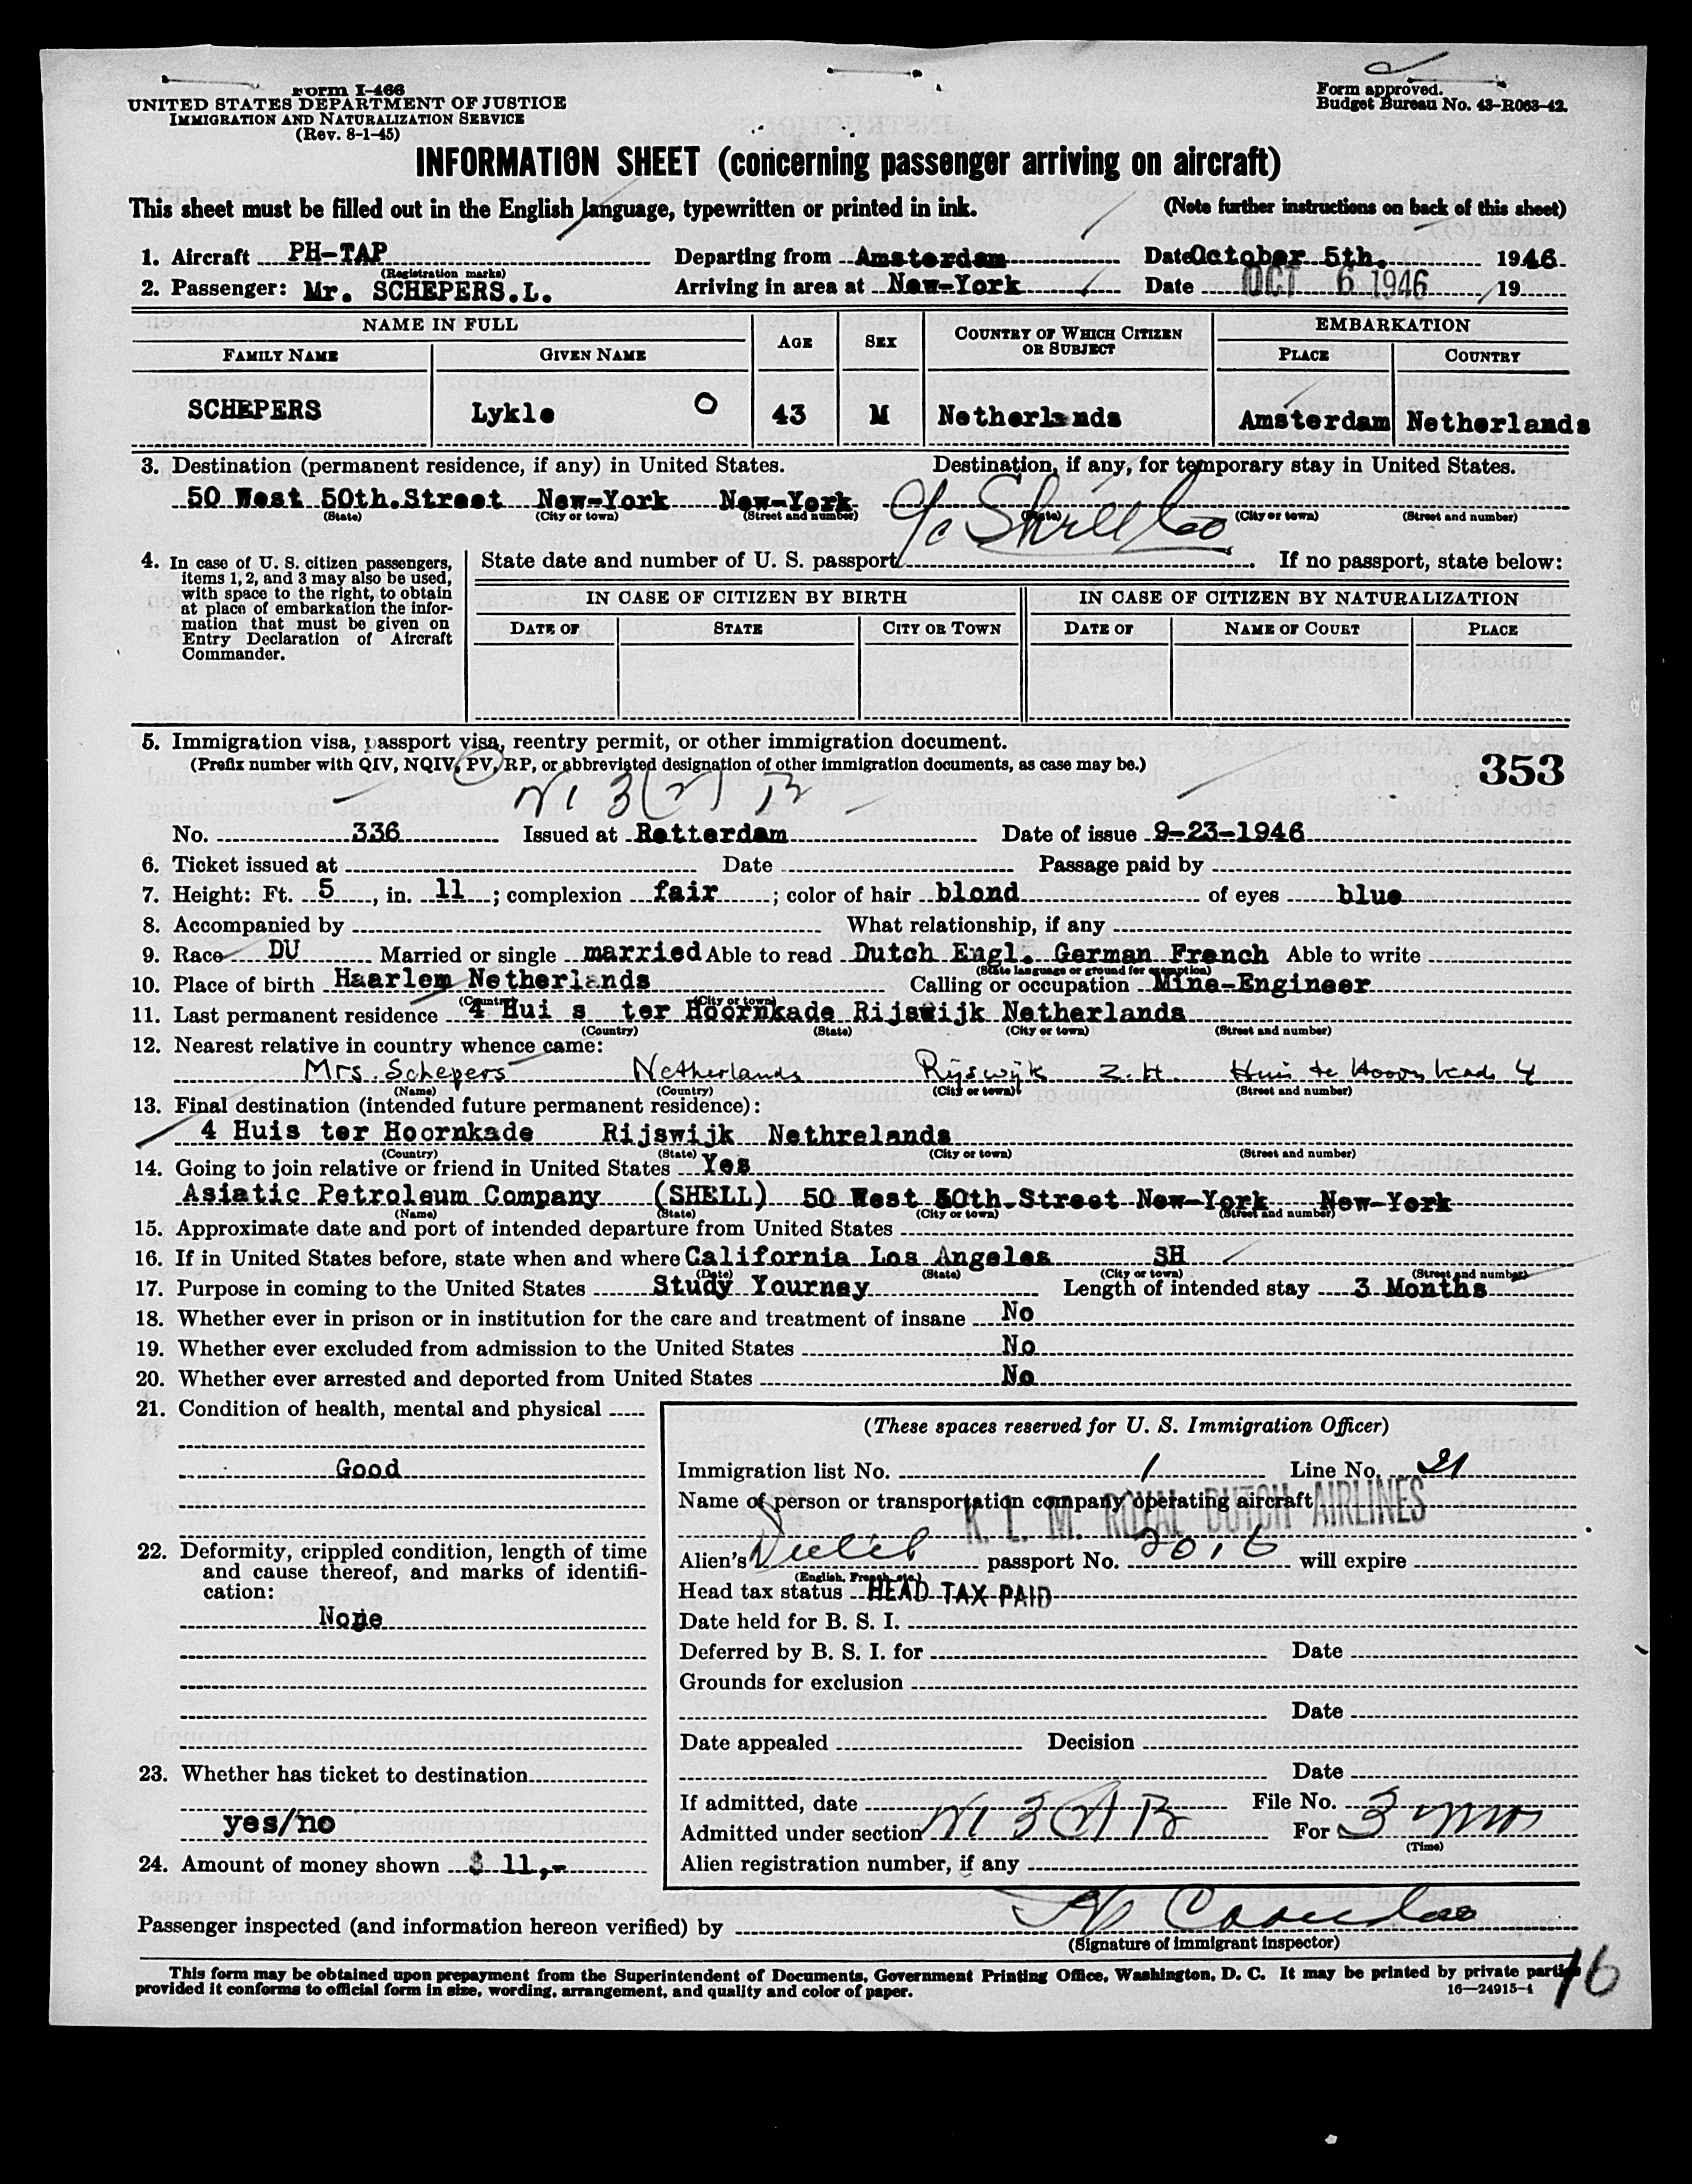 Form I-466
UNITED STATES DEPARTMENT OF JUSTICE
IMMIGRATION AND NATURALIZATION SERVICE
(Rev. 8-1-45)
Form approved.
Budget Bureau No. 43-R063-42.
INFORMATION SHEET (concerning passenger arriving on aircraft)
This sheet must be filled out in the English language, typewritten or printed in ink. (Note further instructions on back of this sheet)
1. Aircraft PH-TAP Departing from Amsterdam Date October 5th. 1946
(Registration marks)
2. Passenger: Mr. SCHEPERS.L. Arriving in area at New-York Date OCT 6 1946 19
NAME IN FULL AGE SEX COUNTRY OF WHICH CITIZEN OR SUBJECT EMBARKATION
FAMILY NAME GIVEN NAME PLACE COUNTRY
SCHEPERS Lykle O 43 M Netherlands Amsterdam Netherlands
3. Destination (permanent residence, if any) in United States. Destination, if any, for temporary stay in United States.
50 West 50th.Street New-York New-York c/o Shell Co
(State) (City or town) (Street and number) (State) (City or town) (Street and number)
4. In case of U. S. citizen passengers, items 1, 2, and 3 may also be used, with space to the right, to obtain at place of embarkation the information that must be given on Entry Declaration of Aircraft Commander.
State date and number of U. S. passport. If no passport, state below:
IN CASE OF CITIZEN BY BIRTH IN CASE OF CITIZEN BY NATURALIZATION
DATE OF STATE CITY OR TOWN DATE OF NAME OF COURT PLACE
5. Immigration visa, passport visa, reentry permit, or other immigration document.
(Prefix number with QIV, NQIV, PV, RP, or abbreviated designation of other immigration documents, as case may be.) 353
3(2) B
No. 336 Issued at Rotterdam Date of issue 9-23-1946
6. Ticket issued at Date Passage paid by
7. Height: Ft. 5, in. 11; complexion fair; color of hair blond of eyes blue
8. Accompanied by What relationship, if any
9. Race DU Married or single married Able to read Dutch Engl. German French Able to write
(State language or ground for exemption)
10. Place of birth Haarlem Netherlands Calling or occupation Mine-Engineer
(Country) (City or town)
11. Last permanent residence 4 Hui s ter Hoornkade Rijswijk Netherlands
(Country) (State) (City or town) (Street and number)
12. Nearest relative in country whence came:
Mrs. Schepers Netherlands Rijswijk Z.H. Huis te Hoorn kade 4
(Name) (Country) (City or town) (Street and number)
13. Final destination (intended future permanent residence):
4 Huis ter Hoornkade Rijswijk Nethrelands
(Country) (State) (City or town) (Street and number)
14. Going to join relative or friend in United States Yes
Asiatic Petroleum Company (SHELL) 50 West 50th.Street New-York New-York
(Name) (State) (City or town) (Street and number)
15. Approximate date and port of intended departure from United States
16. If in United States before, state when and where California Los Angeles SH
(Date) (State) (City or town) (Street and number)
17. Purpose in coming to the United States Study Yourney Length of intended stay 3 Months
18. Whether ever in prison or in institution for the care and treatment of insane No
19. Whether ever excluded from admission to the United States No
20. Whether ever arrested and deported from United States No
21. Condition of health, mental and physical
Good
22. Deformity, crippled condition, length of time and cause thereof, and marks of identification:
None
23. Whether has ticket to destination
yes/no
24. Amount of money shown $ 11,-
(These spaces reserved for U. S. Immigration Officer)
Immigration list No. 1 Line No. 21
Name of person or transportation company operating aircraft
K. L. M. ROYAL DUTCH AIRLINES
Alien's passport No. 2016 will expire
(English, French, etc.)
Head tax status HEAD TAX PAID
Date held for B. S. I.
Deferred by B. S. I. for Date
Grounds for exclusion
Date
Date appealed Decision
Date
If admitted, date File No.
Admitted under section 3 (2) B For 3 mos
(Time)
Alien registration number, if any
Passenger inspected (and information hereon verified) by
(Signature of immigrant inspector)
This form may be obtained upon prepayment from the Superintendent of Documents, Government Printing Office, Washington, D. C. It may be printed by private parties
provided it conforms to official form in size, wording, arrangement, and quality and color of paper. 16—24915-1
16